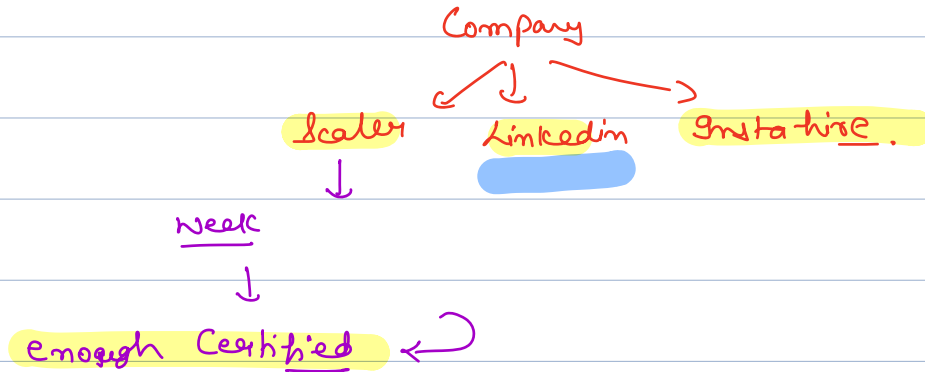 Company
Scaler Linkedin Instahire.
Week
enough Certified